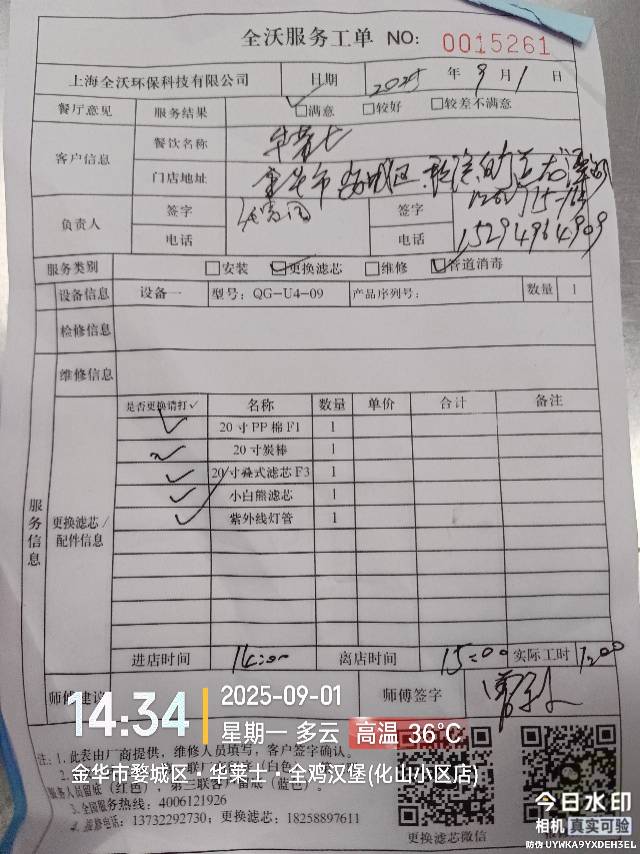 全沃服务工单 NO: 0015261
上海全沃环保科技有限公司 日期 2025 年 9 月 1 日
餐厅意见 服务结果 ☑满意 □较好 □较差不满意
客户信息 餐饮名称 华莱士
门店地址 金华市婺城区
负责人 签字 签字
电话 电话 15294964909
服务类别 □安装 ☑更换滤芯 □维修 ☑管道消毒
设备信息 设备一 型号: QG-U4-09 产品序列号: 数量 1
检修信息
维修信息
服务信息
更换滤芯/配件信息
是否更换请打✓ 名称 数量 单价 合计 备注
✓ 20寸PP棉F1 1
✓ 20寸炭棒 1
✓ 20寸叠式滤芯F3 1
✓ 小白熊滤芯 1
✓ 紫外线灯管 1
进店时间 14:00 离店时间 15:00 实际工时
师傅建议 师傅签字
14:34 2025-09-01
星期一 多云 高温 36°C
金华市婺城区·华莱士·全鸡汉堡(化山小区店)
注: 1. 此表由厂商提供，维修人员填写，客户签字确认。
员留底（红色），第三联客户留底（蓝色）。
3. 全国服务热线: 4006121926
4. 维修电话: 13732292730; 更换滤芯: 18258897611
更换滤芯微信
今日水印
相机 真实可验
防伪 UYWKA9YXDEH3EL